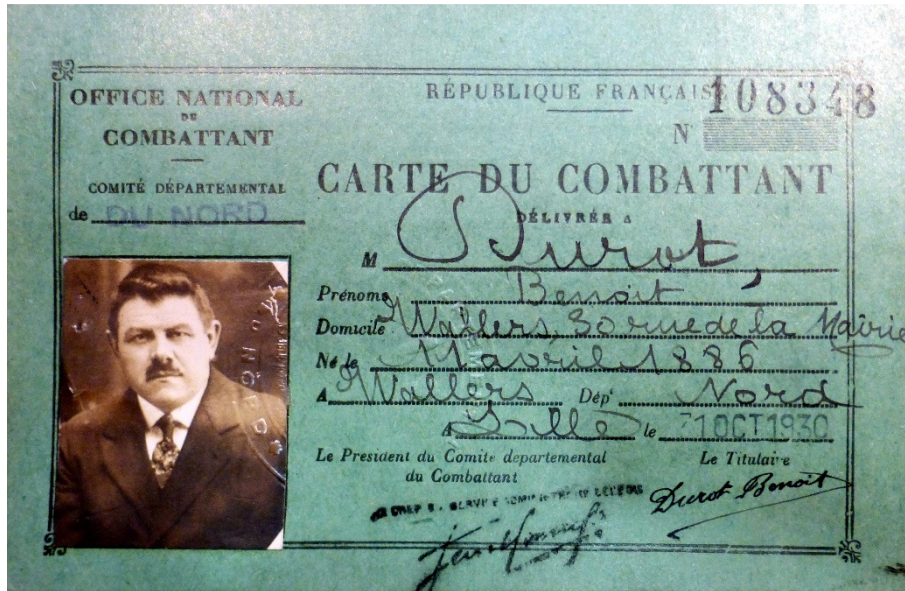 OFFICE NATIONAL
DU
COMBATTANT
COMITÉ DÉPARTEMENTAL
de DU NORD
RÉPUBLIQUE FRANÇAISE
108348
N
CARTE DU COMBATTANT
DÉLIVRÉE A
M Durot,
Prénoms Benoit
Domicile Wallers, 30 rue de la Mairie
Né le 11 avril 1886
A Wallers Dépt Nord
A Lille le 31 OCT 1930
Le President du Comite departemental
du Combattant
Le Titulaire
Durot Benoit